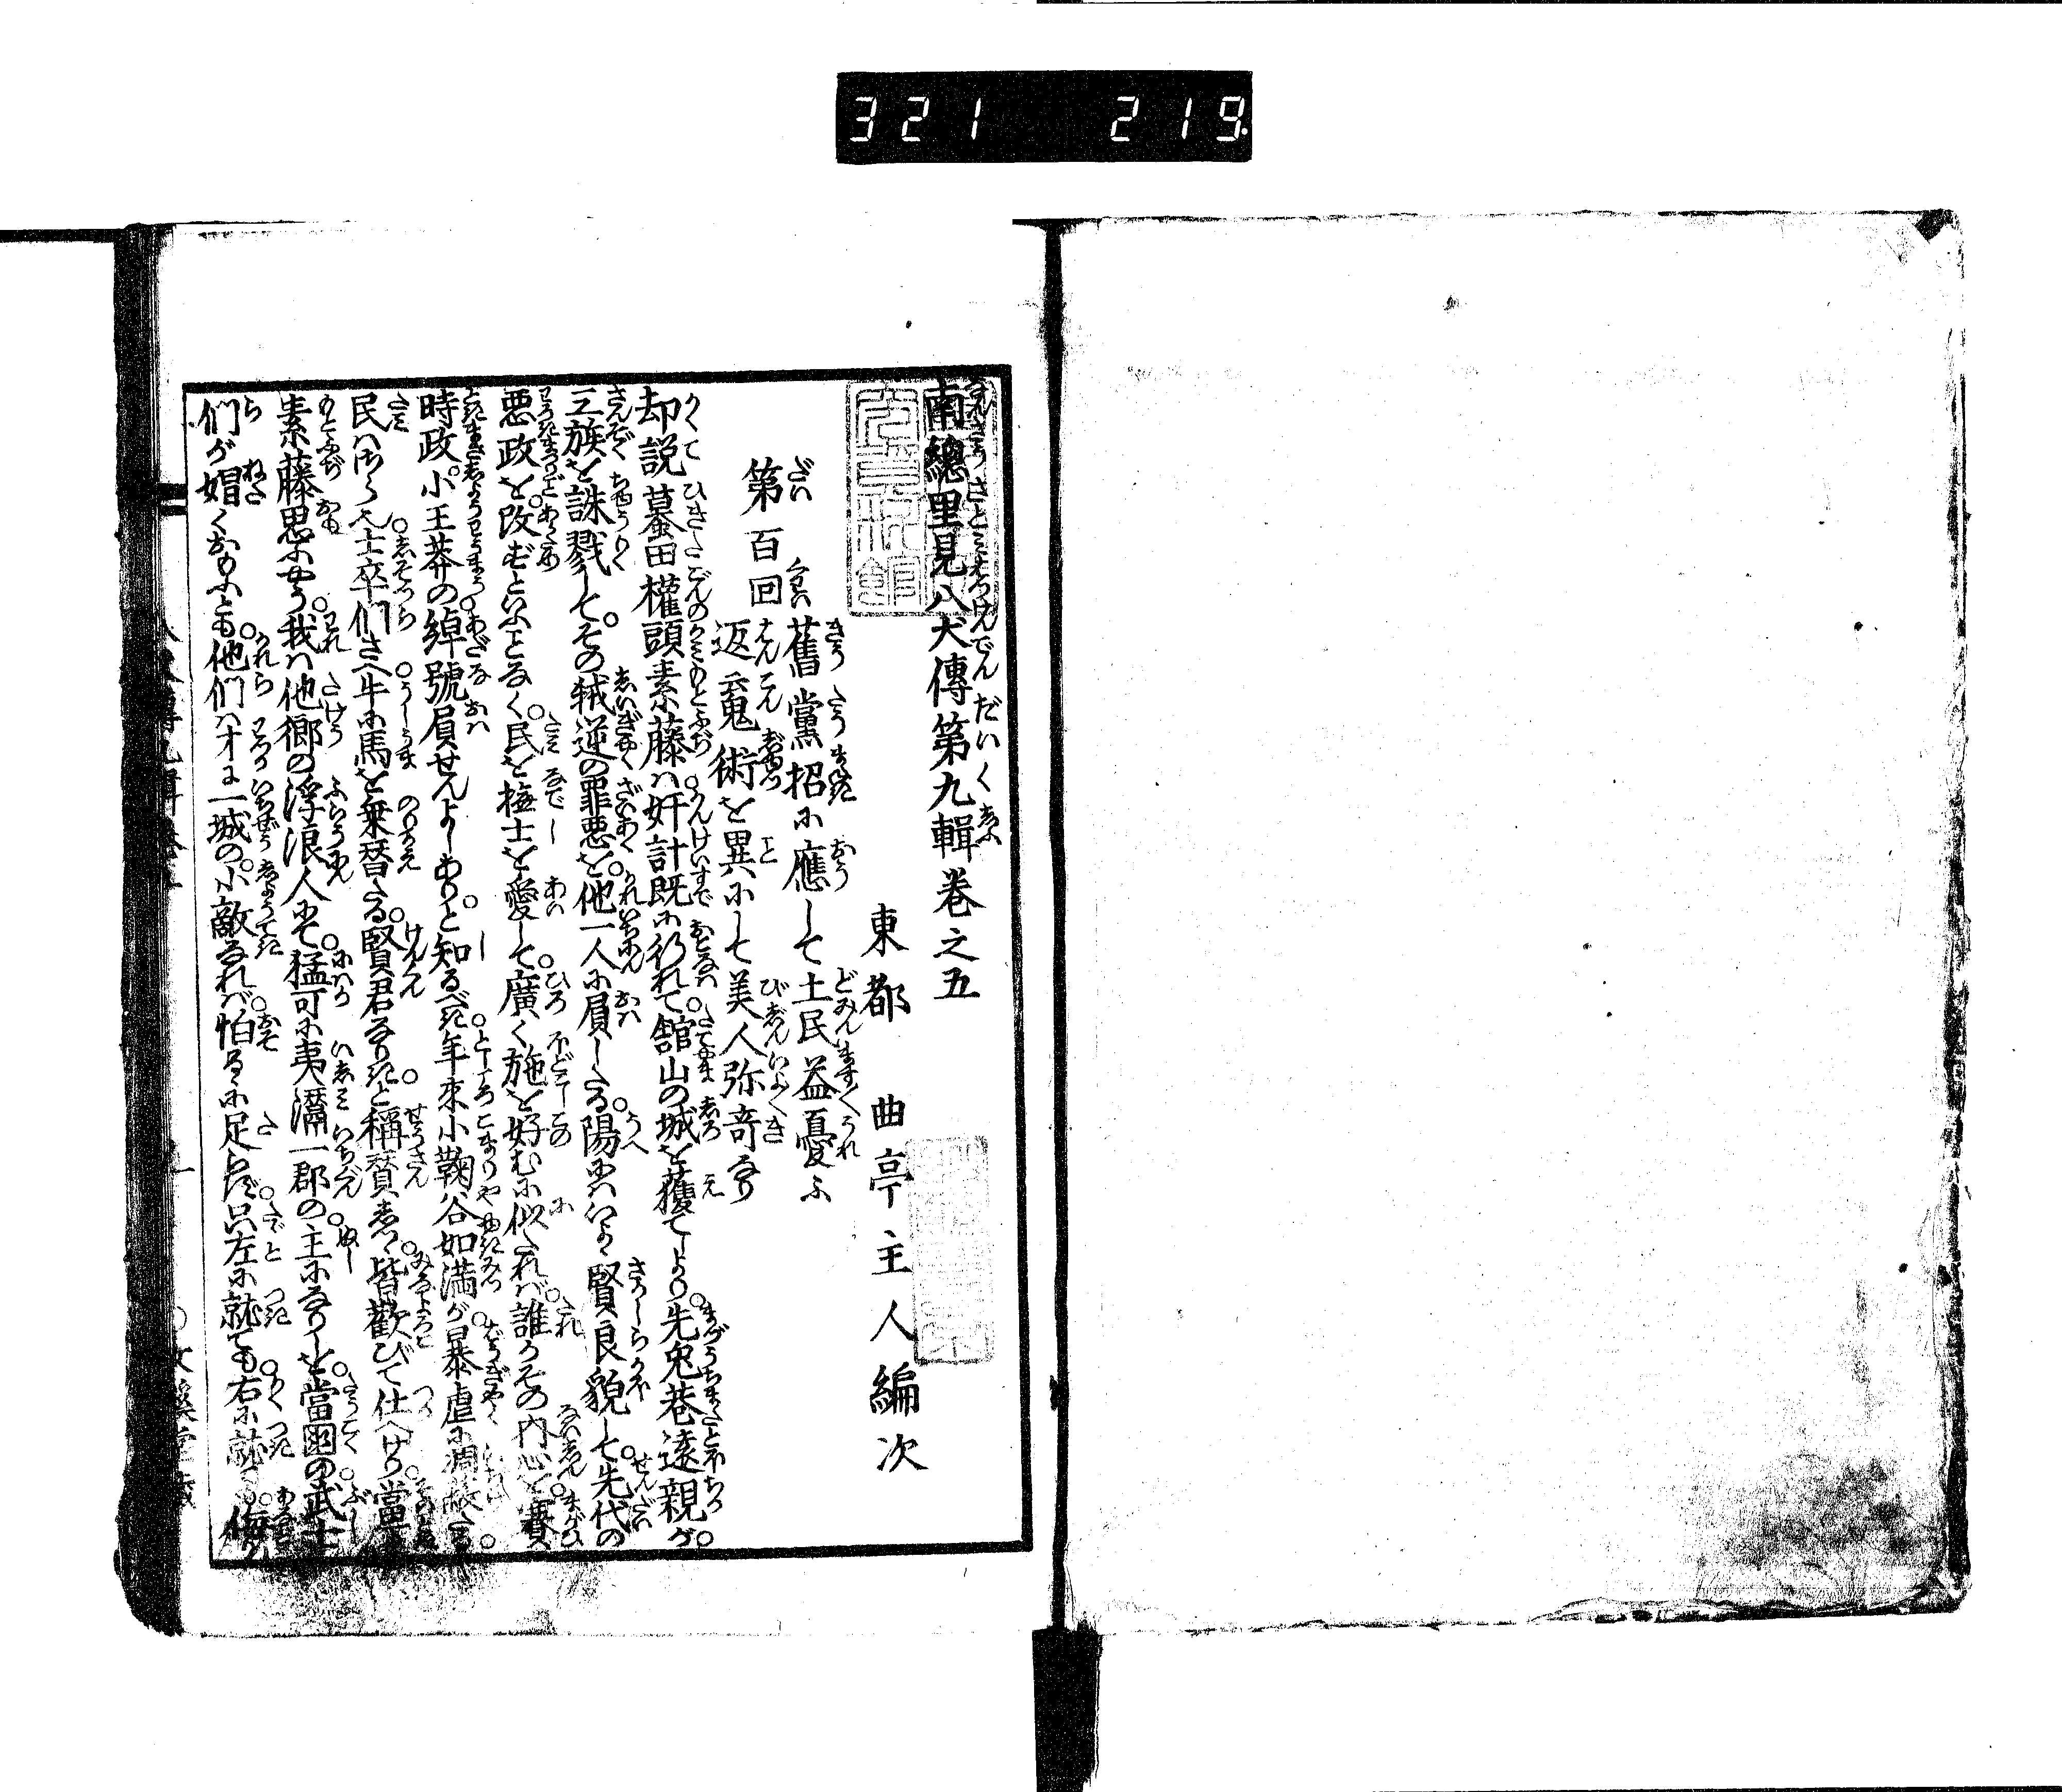 321 219
南總里見八犬傳第九輯巻之五
東都 曲亭主人編次
第百回
舊黨招に應して土民益憂ふ
返䰟術を異にして美人弥奇なり
却説蟇田權頭素藤ハ奸計既に行れて舘山の城を獲てしより。先兎巷遠親が。
三族を誅戮して。その弑逆の罪悪を。他一人に屓しつる。陽にハいよゝ賢良貌して。先代の
悪政を。改めずといふことなく。民を撫士を愛して。廣く施を好むに似たれバ。誰かその内心を
時政。小王莽の綽號屓せんよしありと。知るべき。年來小鞠谷如満が暴虐に
民ハさら也士卒們さへ。牛に馬を乗替たる。賢君なりきと。稱賛しゝ。皆歡びて仕へけり
素藤思ふやう。我ハ他郷の浮浪人にて。猛可に夷灊一郡の。主になりしを。當國の。武士
們が媢くおもふとも。他們ハ才に一城の。小敵なれバ。怕るゝに足らず。只左に就ても。右に就ても